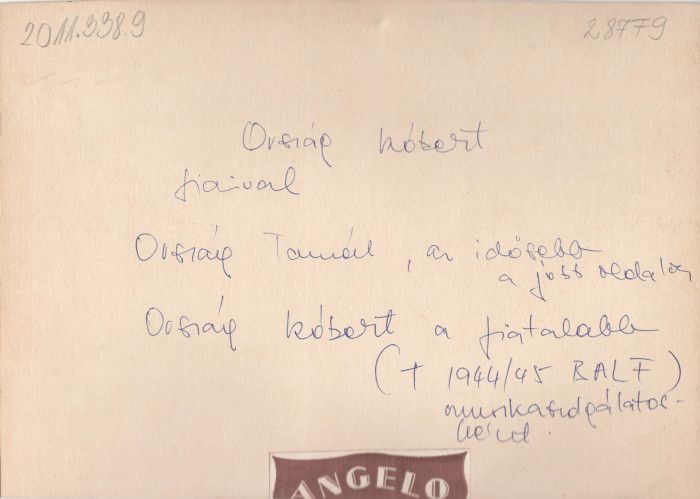 2011.338.9
28779
Ország Róbert
fiaival
Ország Tamás, az idősebb
a jobb oldalon
Ország Róbert a fiatalabb
(† 1944/45 BALF)
munkaszolgálatos-
ként.
ANGELO